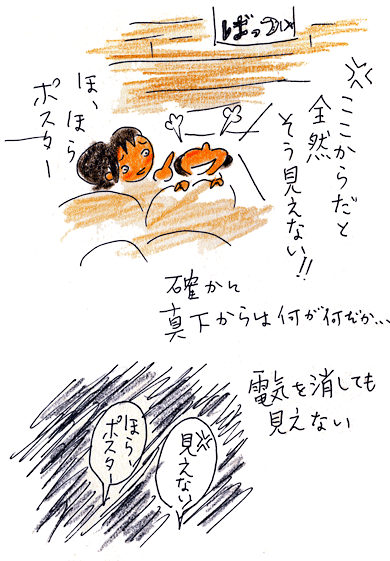 ここからだと
全然
そう見えない!!
ほ、ほら
ポスター
確かに
真下からは何が何だか…
電気を消しても
見えない
ほら、
ポスター
見えない